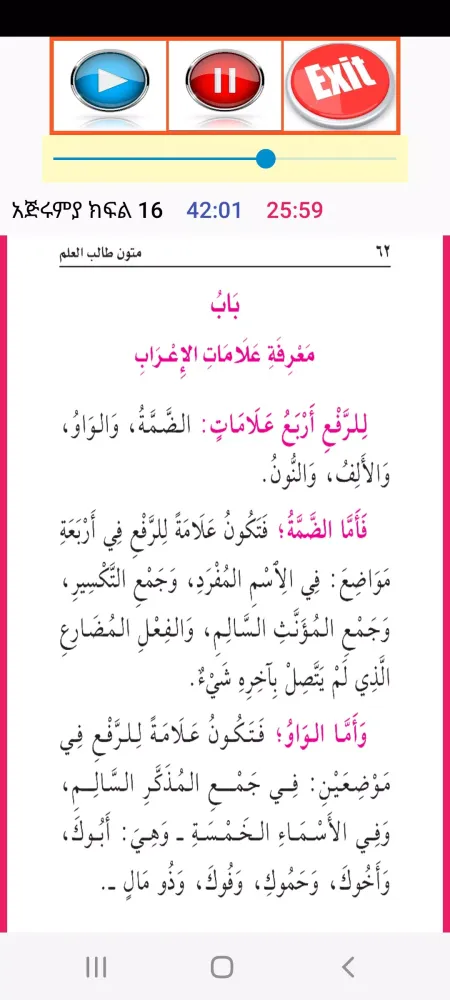 Exit
አጅሩምያ ክፍል 16 42:01 25:59
٦٢ متون طالب العلم
بَابُ
مَعْرِفَةِ عَلَامَاتِ الإِعْرَابِ
لِلرَّفْعِ أَرْبَعُ عَلَامَاتٍ: الضَّمَّةُ، وَالوَاوُ،
وَالأَلِفُ، وَالنُّونُ.
فَأَمَّا الضَّمَّةُ؛ فَتَكُونُ عَلَامَةً لِلرَّفْعِ فِي أَرْبَعَةِ
مَوَاضِعَ: فِي الِٱسْمِ المُفْرَدِ، وَجَمْعِ التَّكْسِيرِ،
وَجَمْعِ المُؤَنَّثِ السَّالِمِ، وَالفِعْلِ المُضَارِعِ
الَّذِي لَمْ يَتَّصِلْ بِآخِرِهِ شَيْءٌ.
وَأَمَّا الوَاوُ؛ فَتَكُونُ عَلَامَةً لِلرَّفْعِ فِي
مَوْضِعَيْنِ: فِي جَمْعِ المُذَكَّرِ السَّالِمِ،
وَفِي الأَسْمَاءِ الخَمْسَةِ ـ وَهِيَ: أَبُوكَ،
وَأَخُوكَ، وَحَمُوكِ، وَفُوكَ، وَذُو مَالٍ ـ.